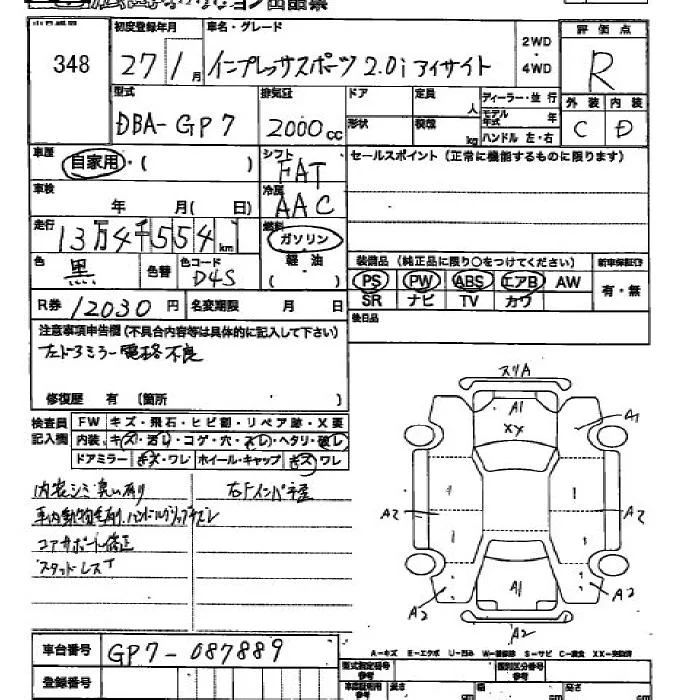 348
初度登録年月
27 1月
車名・グレード
インプレッサスポーツ 2.0i アイサイト
2WD
・
4WD
評価点
R
型式
DBA-GP7
排気量
2000cc
ドア
定員
人
形状
積載
kg
ディーラー・並行
モデル年式 年
ハンドル 左・右
外装 内装
C D
車歴
自家用・( )
シフト
FAT
セールスポイント(正常に機能するものに限ります)
車検
年 月( 日)
冷房
AAC
走行
13万4千554km
燃料
ガソリン
軽油
( )
色
黒
色替
色コード
D4S
装備品(純正品に限り○をつけてください)
新車保証書
PS PW ABS エアB AW
有・無
SR ナビ TV カワ
R券 12030円
名変期限 月 日
後日品
注意事項申告欄(不具合内容等は具体的に記入して下さい)
左ドアミラー電格不良
修復歴 有 (箇所 )
検査員記入欄
FW キズ・飛石・ヒビ割・リペア跡・X要
内装 キズ・汚レ・コゲ・穴・スレ・ヘタリ・破レ
ドアミラー キズ・ワレ ホイール・キャップ キズ・ワレ
内装シミ臭い有り
車内動物毛有、ハンドルグリップキズスレ
コアサポート修正
スタッドレス
右Fインパネ歪
スリA
A1
XX
A1
A2
A2
A1
A2
A2
A2
A-キズ E-エクボ U-凹み W-補修跡 S-サビ C-腐食 XX-交換済
車台番号
GP7-087889
登録番号
型式指定番号
参考
類別区分番号
参考
長さ
cm
幅
cm
高さ
cm